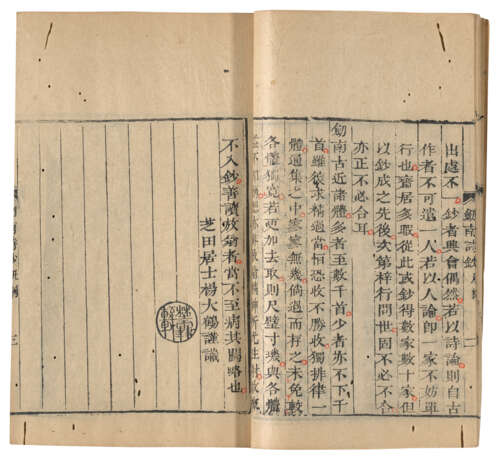 劒南詩鈔
二
出處不一鈔者興會偶然若以詩論則自古
作者不可遺一人若以人論即一家不妨單
行也齋居多暇從此或鈔得數家數十家但
以鈔成之先後次第梓行問世固不必不合
亦正不必合耳
劒南古近諸體多者至數千首少者亦不下千
首雖求精過當恒恐收不勝收獨排律一
體通集之中寥寥無幾倘過而存之未免較
各體獨寬若更加去取則尺璧寸璣與各體
不入鈔善讀放翁者當不至病其闕略也
芝田居士楊大鶴謹識
三